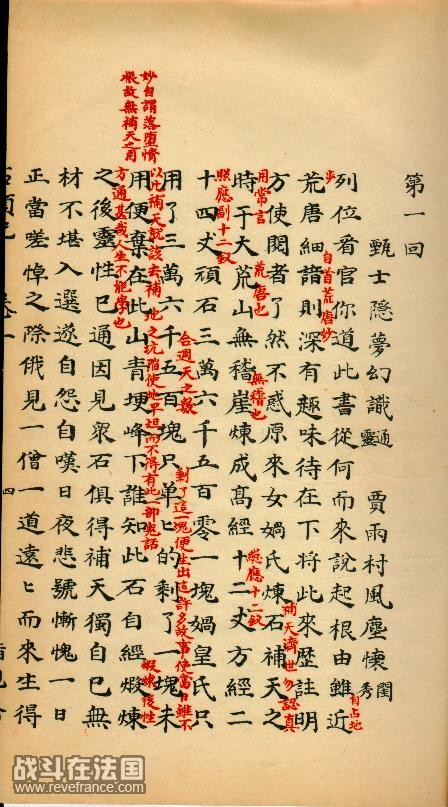 第一回
甄士隱夢幻識通靈 賈雨村風塵懷閨秀
列位看官你道此書從何而來說起根由雖近
自占地
步
荒唐細諳則深有趣味待在下將此來歷註明
自首荒唐妙
方使閱者了然不惑原來女媧氏煉石補天之
補天濟世勿認真
用常言
時于大荒山無稽崖煉成高經十二丈方經二
荒唐也
無稽也
總應十二釵
十四丈頑石三萬六千五百零一塊媧皇氏只
照應副十二釵
合週天之數
用了三萬六千五百塊只单〻的剩了一塊未
剩了這一塊便生出這許多故事使當日雖不
以此補天就該去補地之坑陷使地平坦而不得有此一部鬼話
用便棄在此山青埂峰下誰知此石自經煅煉
妙自謂落墮情
根故無補天之用
煅煉後性
方通甚哉人生不能學也
之後靈性已通因見衆石俱得補天獨自己無
材不堪入選遂自怨自嘆日夜悲號慚愧一日
正當嗟悼之際俄見一僧一道遠〻而來生得
四
战斗在法国
www.revefrance.com